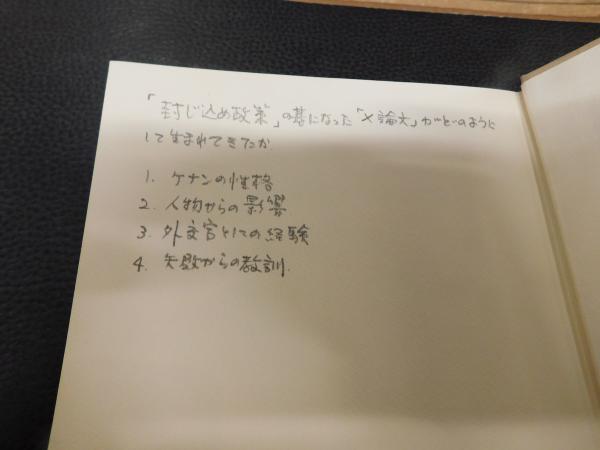 「封じ込め政策」の基になった「X論文」がどのように
して生まれてきたか
1. ケナンの性格
2. 人物からの影響
3. 外交官としての経験
4. 失敗からの教訓.